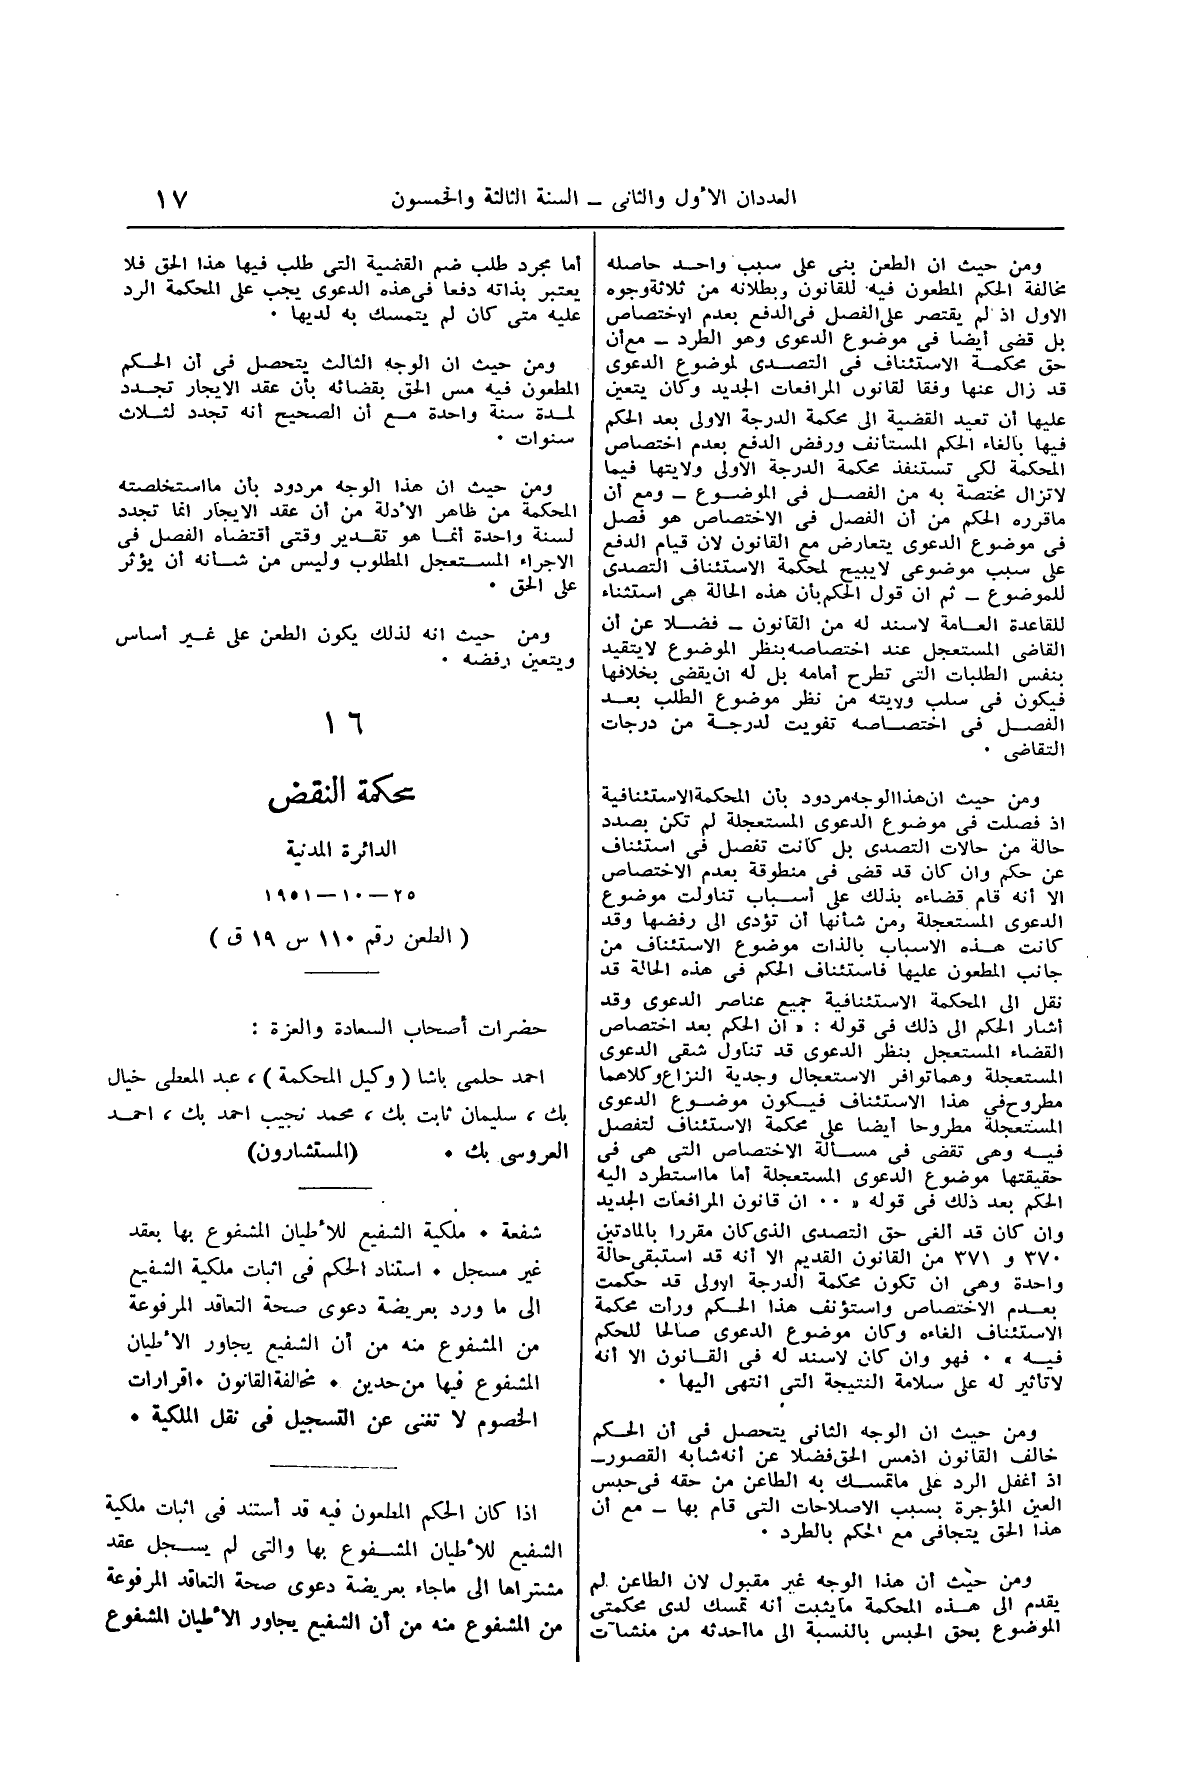 العددان الأول والثانى ــ السنة الثالثة والخمسون
١٧
ومن حيث ان الطعن بنى على سبب واحد حاصله
مخالفة الحكم المطعون فيه للقانون وبطلانه من ثلاثة وجوه
الاول اذ لم يقتصر على الفصل فى الدفع بعدم الاختصاص
بل قضى أيضا فى موضوع الدعوى وهو الطرد ــ مع أن
حق محكمة الاستئناف فى التصدى لموضوع الدعوى
قد زال عنها وفقا لقانون المرافعات الجديد وكان يتعين
عليها أن تعيد القضية الى محكمة الدرجة الاولى بعد الحكم
فيها بالغاء الحكم المستأنف ورفض الدفع بعدم اختصاص
المحكمة لكى تستنفذ محكمة الدرجة الاولى ولايتها فيما
لاتزال مختصة به من الفصل فى الموضوع ــ ومع أن
ماقرره الحكم من أن الفصل فى الاختصاص هو فصل
فى موضوع الدعوى يتعارض مع القانون لان قيام الدفع
على سبب موضوعى لايبيح لمحكمة الاستئناف التصدى
للموضوع ــ ثم ان قول الحكم بأن هذه الحالة هى استثناء
للقاعدة العامة لاسند له من القانون ــ فضلا عن أن
القاضى المستعجل عند اختصاصه بنظر الموضوع لايتقيد
بنفس الطلبات التى تطرح أمامه بل له ان يقضى بخلافها
فيكون فى سلب ولايته من نظر موضوع الطلب بعد
الفصل فى اختصاصه تفويت لدرجة من درجات
التقاضى .
ومن حيث ان هذا الوجه مردود بأن المحكمة الاستئنافية
اذ فصلت فى موضوع الدعوى المستعجلة لم تكن بصدد
حالة من حالات التصدى بل كانت تفصل فى استئناف
عن حكم وان كان قد قضى فى منطوقة بعدم الاختصاص
الا أنه قام قضاءه بذلك على أسباب تناولت موضوع
الدعوى المستعجلة ومن شأنها أن تؤدى الى رفضها وقد
كانت هذه الاسباب بالذات موضوع الاستئناف من
جانب المطعون عليها فاستئناف الحكم فى هذه الحالة قد
نقل الى المحكمة الاستئنافية جميع عناصر الدعوى وقد
أشار الحكم الى ذلك فى قوله : « ان الحكم بعد اختصاص
القضاء المستعجل بنظر الدعوى قد تناول شقى الدعوى
المستعجلة وهما توافر الاستعجال وجدية النزاع وكلاهما
مطروح فى هذا الاستئناف فيكون موضوع الدعوى
المستعجلة مطروحا أيضا على محكمة الاستئناف لتفصل
فيه وهى تقضى فى مسألة الاختصاص التى هى فى
حقيقتها موضوع الدعوى المستعجلة أما مااستطرد اليه
الحكم بعد ذلك فى قوله « ٠٠ ان قانون المرافعات الجديد
وان كان قد الغى حق التصدى الذى كان مقررا بالمادتين
٣٧٠ و ٣٧١ من القانون القديم الا أنه قد استبقى حالة
واحدة وهى ان تكون محكمة الدرجة الاولى قد حكمت
بعدم الاختصاص واستؤنف هذا الحكم ورأت محكمة
الاستئناف الغاءه وكان موضوع الدعوى صالحا للحكم
فيه » . فهو وان كان لاسند له فى القانون الا أنه
لاتأثير له على سلامة النتيجة التى انتهى اليها .
ومن حيث ان الوجه الثانى يتحصل فى أن الحكم
خالف القانون اذ مس الحق فضلا عن أنه شابه القصور ــ
اذ أغفل الرد على ماتمسك به الطاعن من حقه فى حبس
العين المؤجرة بسبب الاصلاحات التى قام بها ــ مع أن
هذا الحق يتجافى مع الحكم بالطرد .
ومن حيث أن هذا الوجه غير مقبول لان الطاعن لم
يقدم الى هذه المحكمة مايثبت أنه تمسك لدى محكمتى
الموضوع بحق الحبس بالنسبة الى ماأحدثه من منشآت
أما مجرد طلب ضم القضية التى طلب فيها هذا الحق فلا
يعتبر بذاته دفعا فى هذه الدعوى يجب على المحكمة الرد
عليه متى كان لم يتمسك به لديها .
ومن حيث ان الوجه الثالث يتحصل فى أن الحكم
المطعون فيه مس الحق بقضائه بأن عقد الايجار تجدد
لمدة سنة واحدة مع أن الصحيح أنه تجدد لثلاث
سنوات .
ومن حيث ان هذا الوجه مردود بأن مااستخلصته
المحكمة من ظاهر الأدلة من أن عقد الايجار انما تجدد
لسنة واحدة أنما هو تقدير وقتى أقتضاه الفصل فى
الاجراء المستعجل المطلوب وليس من شأنه أن يؤثر
على الحق .
ومن حيث انه لذلك يكون الطعن على غير أساس
ويتعين رفضه .
١٦
محكمة النقض
الدائرة المدنية
٢٥ــ١٠ــ١٩٥١
( الطعن رقم ١١٠ س ١٩ ق )
حضرات أصحاب السعادة والعزة :
احمد حلمى باشا ( وكيل المحكمة ) ، عبد المعطى خيال
بك ، سليمان ثابت بك ، محمد نجيب احمد بك ، احمد
العروسى بك . (المستشارون)
شفعة . ملكية الشفيع للأطيان المشفوع بها بعقد
غير مسجل . استناد الحكم فى اثبات ملكية الشفيع
الى ما ورد بعريضة دعوى صحة التعاقد المرفوعة
من المشفوع منه من أن الشفيع يجاور الأطيان
المشفوع فيها من حدين . مخالفة القانون . اقرارات
الخصوم لا تغنى عن التسجيل فى نقل الملكية .
اذا كان الحكم المطعون فيه قد أستند فى اثبات ملكية
الشفيع للأطيان المشفوع بها والتى لم يسجل عقد
مشتراها الى ماجاء بعريضة دعوى صحة التعاقد المرفوعة
من المشفوع منه من أن الشفيع يجاور الأطيان المشفوع